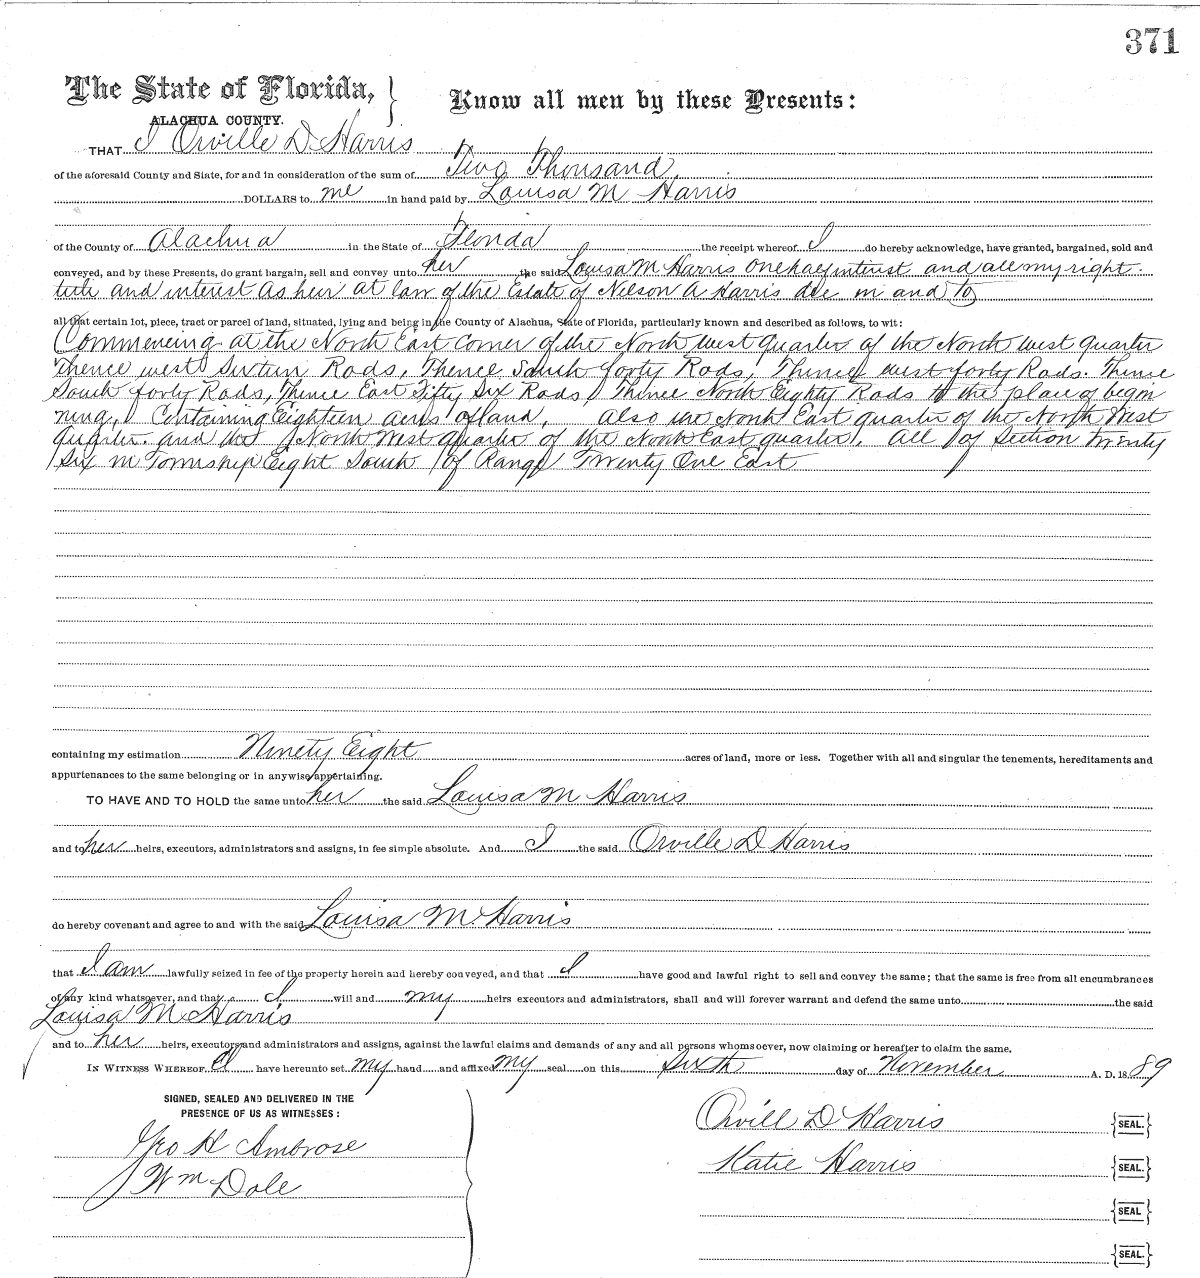 371
The State of Florida, } Know all men by these Presents:
ALACHUA COUNTY.
THAT I Orville D Harris
of the aforesaid County and State, for and in consideration of the sum of Two Thousand
DOLLARS to me in hand paid by Louisa M Harris
of the County of Alachua in the State of Florida the receipt whereof I do hereby acknowledge, have granted, bargained, sold and
conveyed, and by these Presents, do grant bargain, sell and convey unto her the said Louisa M Harris one half interest and all my right
title and interest as heir at law of the Estate of Nelson A Harris dec in and to
all that certain lot, piece, tract or parcel of land, situated, lying and being in the County of Alachua, State of Florida, particularly known and described as follows, to wit:
Commencing at the North East corner of the North west quarter of the North west quarter
Thence west Sixteen Rods, Thence South forty Rods, Thence west forty Rods. Thence
South forty Rods, Thence East Fifty Six Rods, Thence North Eighty Rods to the place of begin
ning, Containing Eighteen acres of land, also the North East quarter of the North West
quarter. and the North West quarter of the North East quarter, all of Section Twenty
Six in Township Eight South of Range Twenty One East
containing my estimation Ninety Eight acres of land, more or less. Together with all and singular the tenements, hereditaments and
appurtenances to the same belonging or in anywise appertaining.
TO HAVE AND TO HOLD the same unto her the said Louisa M Harris
and to her heirs, executors, administrators and assigns, in fee simple absolute. And I the said Orville D Harris
do hereby covenant and agree to and with the said Louisa M Harris
that I am lawfully seized in fee of the property herein and hereby conveyed, and that I have good and lawful right to sell and convey the same; that the same is free from all encumbrances
of any kind whatsoever, and that I will and my heirs executors and administrators, shall and will forever warrant and defend the same unto the said
Louisa M Harris
and to her heirs, executors and administrators and assigns, against the lawful claims and demands of any and all persons whomsoever, now claiming or hereafter to claim the same.
IN WITNESS WHEREOF, I have hereunto set my hand and affixed my seal on this Sixth day of November A. D. 1889
SIGNED, SEALED AND DELIVERED IN THE
PRESENCE OF US AS WITNESSES:
Geo H Ambrose
Wm Dole
Orvill D Harris {SEAL.}
Katie Harris {SEAL.}
{SEAL}
{SEAL.}